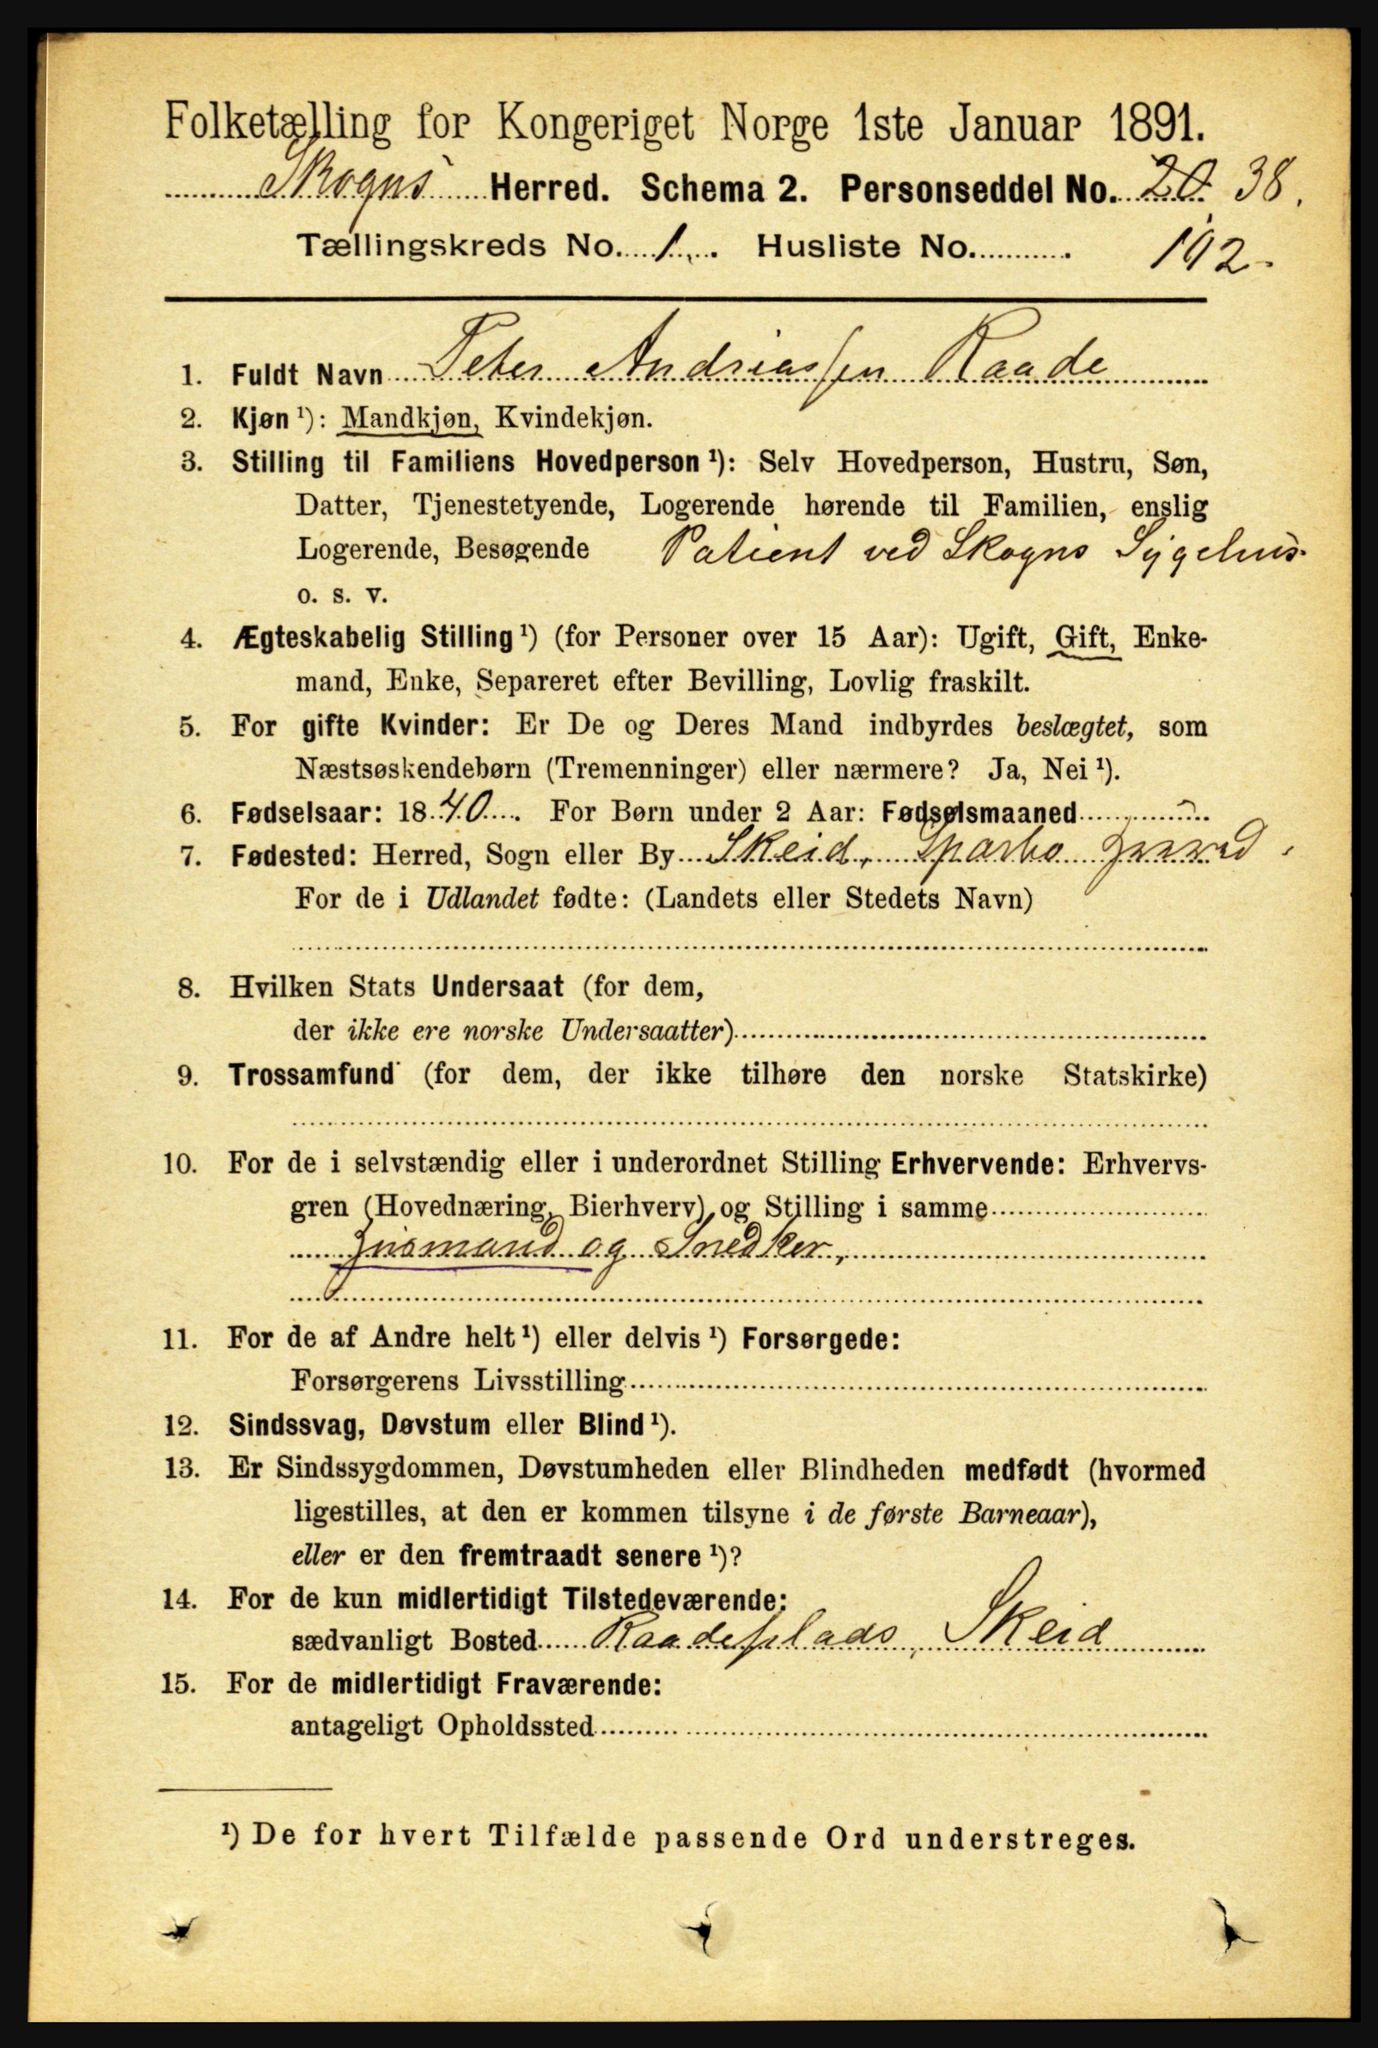 Folketælling for Kongeriget Norge 1ste Januar 1891.
Skogns Herred. Schema 2. Personseddel No. 20. 38.
Tællingskreds No. 1. Husliste No. 192
1. Fuldt Navn Peter Andriassen Raade
2. Kjøn ¹): Mandkjøn, Kvindekjøn.
3. Stilling til Familiens Hovedperson ¹): Selv Hovedperson, Hustru, Søn,
Datter, Tjenestetyende, Logerende hørende til Familien, enslig
Logerende, Besøgende Patient ved Skogns Sygehus.
o. s. v.
4. Ægteskabelig Stilling ¹) (for Personer over 15 Aar): Ugift, Gift, Enke-
mand, Enke, Separeret efter Bevilling, Lovlig fraskilt.
5. For gifte Kvinder: Er De og Deres Mand indbyrdes beslægtet, som
Næstsøskendebørn (Tremenninger) eller nærmere? Ja, Nei ¹).
6. Fødselsaar: 1840. For Børn under 2 Aar: Fødselsmaaned
7. Fødested: Herred, Sogn eller By Skeid, Sparbo
For de i Udlandet fødte: (Landets eller Stedets Navn)
8. Hvilken Stats Undersaat (for dem,
der ikke ere norske Undersaatter)
9. Trossamfund (for dem, der ikke tilhøre den norske Statskirke)
10. For de i selvstændig eller i underordnet Stilling Erhvervende: Erhvervs-
gren (Hovednæring, Bierhverv) og Stilling i samme
Husmand og Snedker,
11. For de af Andre helt ¹) eller delvis ¹) Forsørgede:
Forsørgerens Livsstilling
12. Sindssvag, Døvstum eller Blind ¹).
13. Er Sindssygdommen, Døvstumheden eller Blindheden medfødt (hvormed
ligestilles, at den er kommen tilsyne i de første Barneaar),
eller er den fremtraadt senere ¹)?
14. For de kun midlertidigt Tilstedeværende:
sædvanligt Bosted Raadeplads, Skeid
15. For de midlertidigt Fraværende:
antageligt Opholdssted
¹) De for hvert Tilfælde passende Ord understreges.